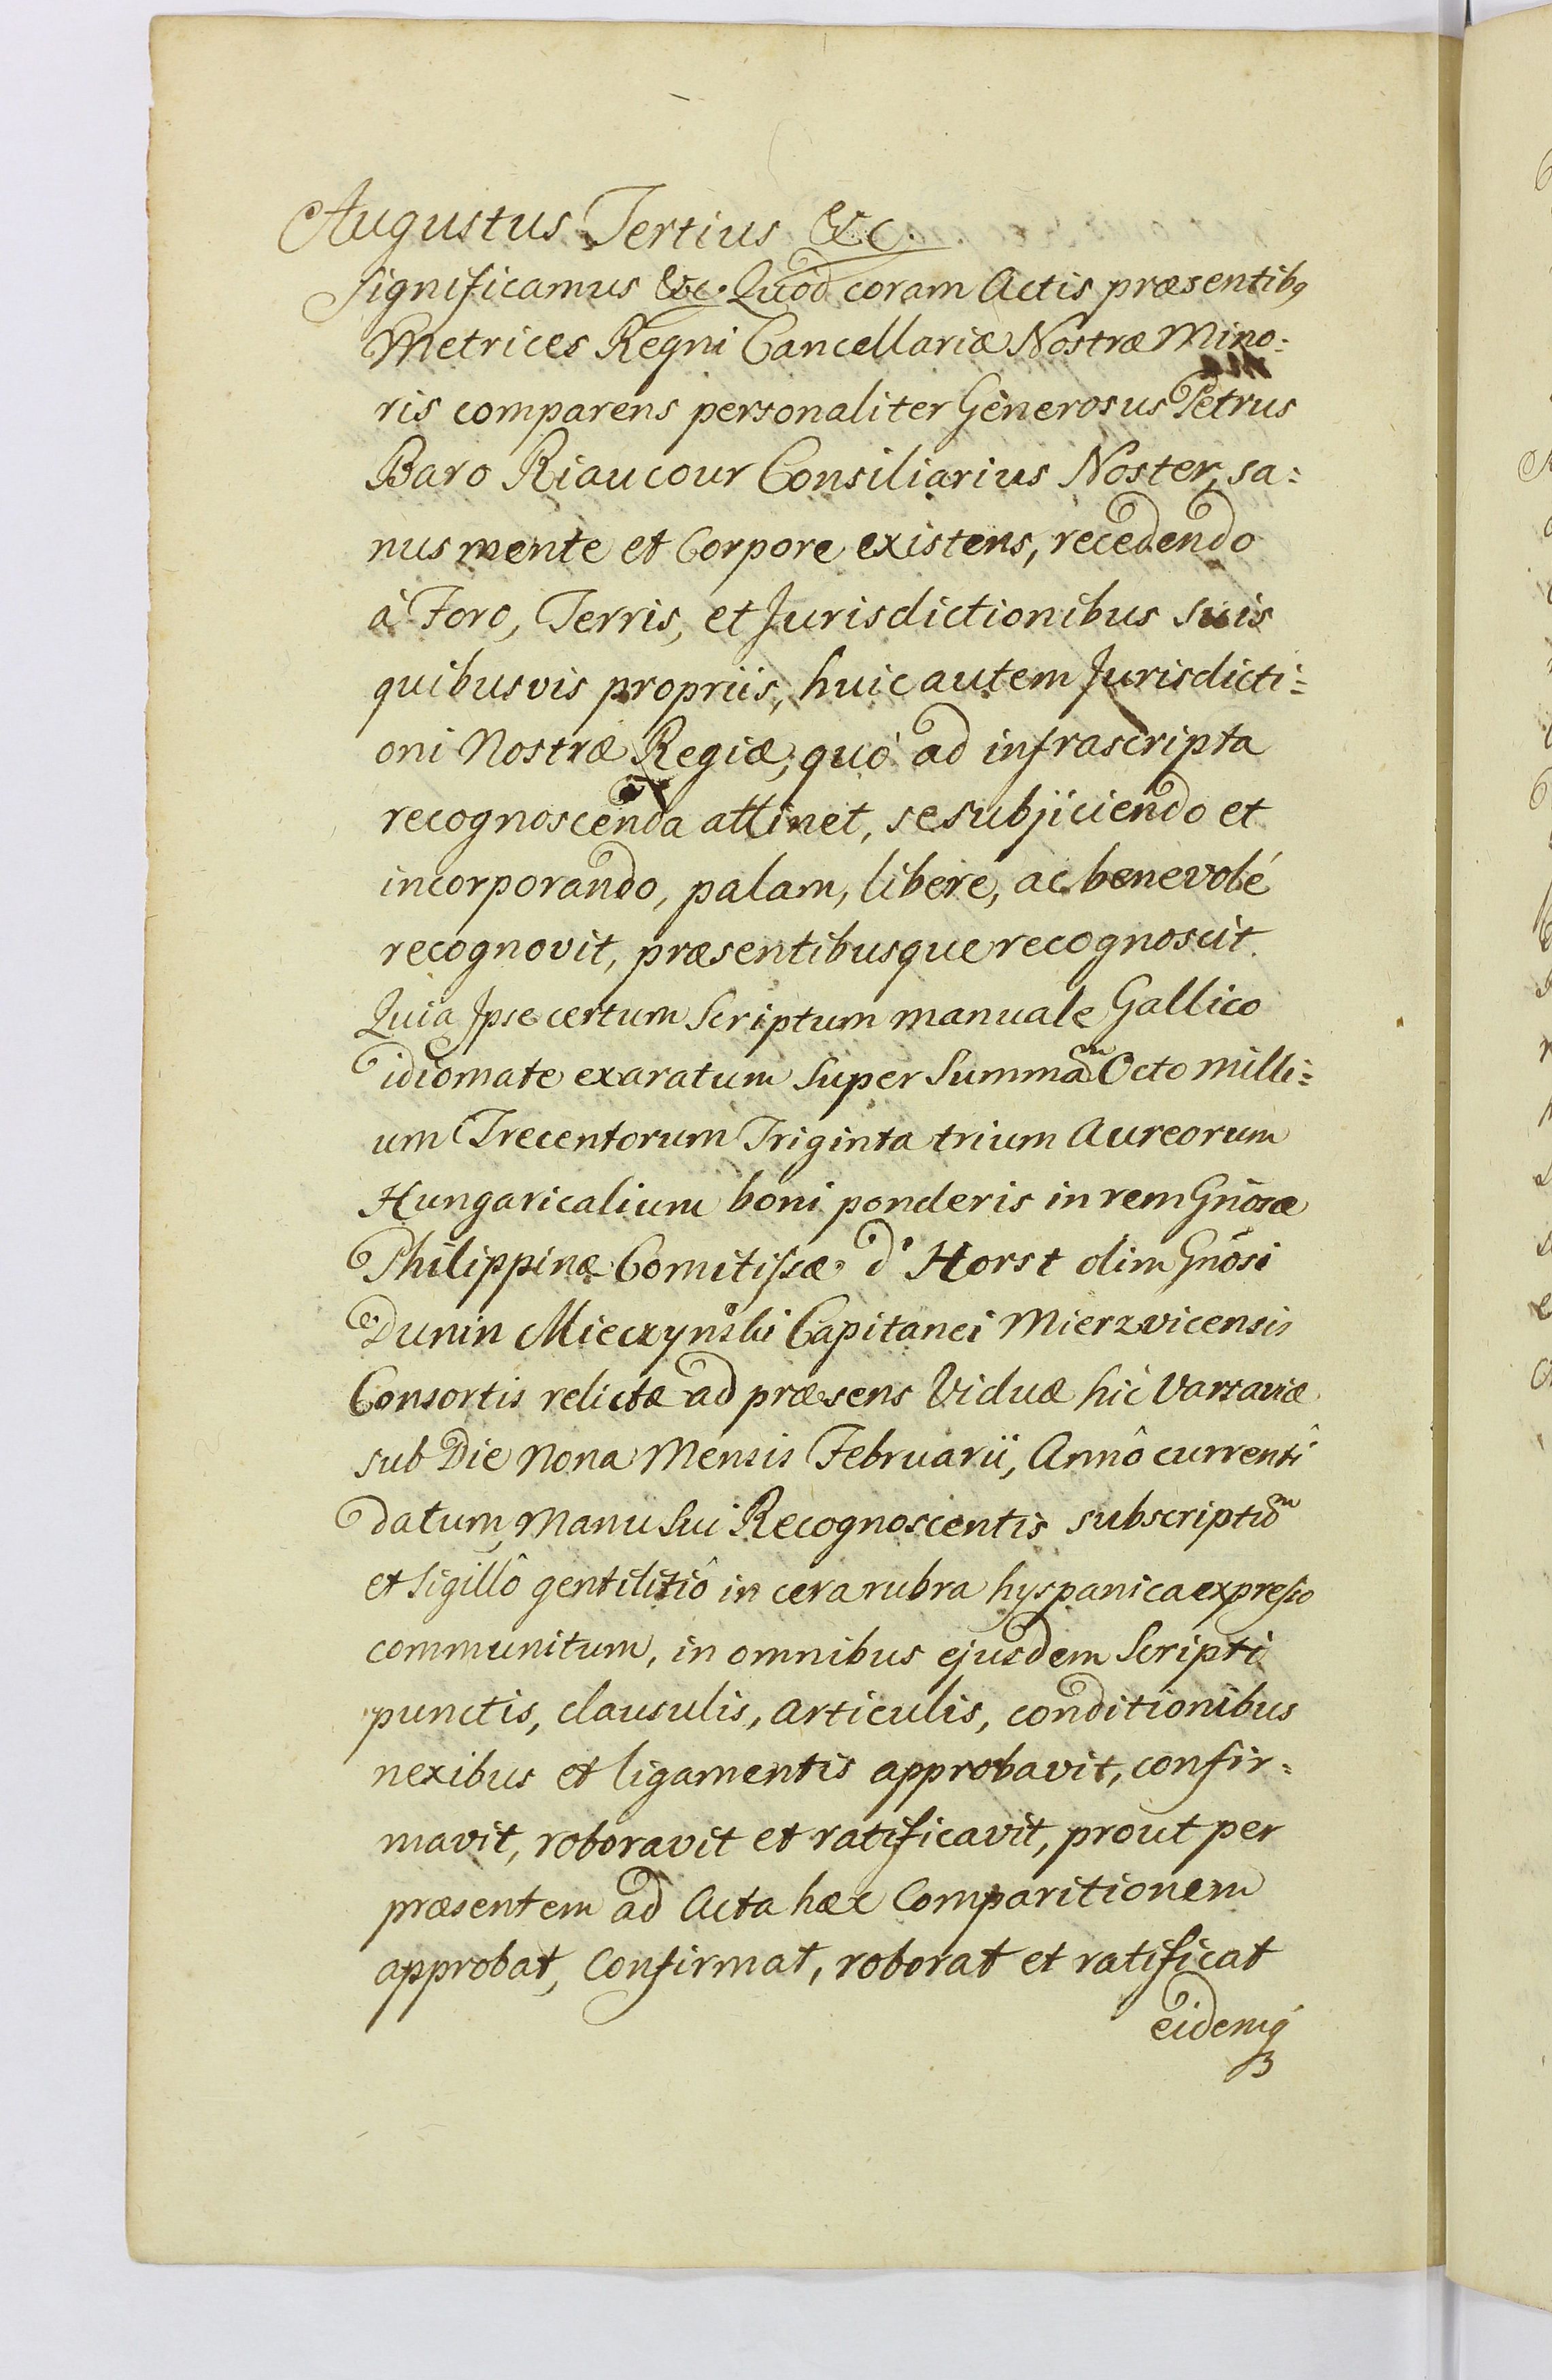 Augustus Tertius &c.
Significamus &c. Quod coram Actis præsentibq
Metrices Regni Cancellariæ Nostræ Mino:
ris comparens personaliter Generosus Petrus
Baro Riaucour Consiliarius Noster, sa:
nus mente et Corpore existens, recedendo
à Foro, Terris, et Jurisdictionibus suis
quibusvis propriis, huic autem Jurisdicti:
oni Nostræ Regiæ, quò ad infrascripta
recognoscenda attinet, se subjiciendo et
incorporando, palam, libere, ac benevolé
recognovit, præsentibusque recognoscit.
Quia Ipse certum Scriptum manuale Gallico
idiomate exaratum super Summam Octo milli:
um Trecentorum Triginta trium Aureorum
Hungaricalium boni ponderis in rem Gñosæ
Philippinæ Comitissæ d'Horst olim Gñosi
Dunin Mieczynski Capitanei Mierzvicensis
Consortis relictæ ad præsens Viduæ hic Varsaviæ
sub Die Nona Mensis Februarii, Annô currenti
datum, Manu sui Recognoscentis subscriptũ
et Sigillô gentilitiô in cera rubra hyspanica expresso
communitum, in omnibus ejusdem Scripti
punctis, clausulis, articulis, conditionibus
nexibus et ligamentis approbavit, confir:
mavit, roboravit et ratificavit, prout per
præsentem ad Acta hæc Comparitionem
approbat, Confirmat, roborat et ratificat
eidemq